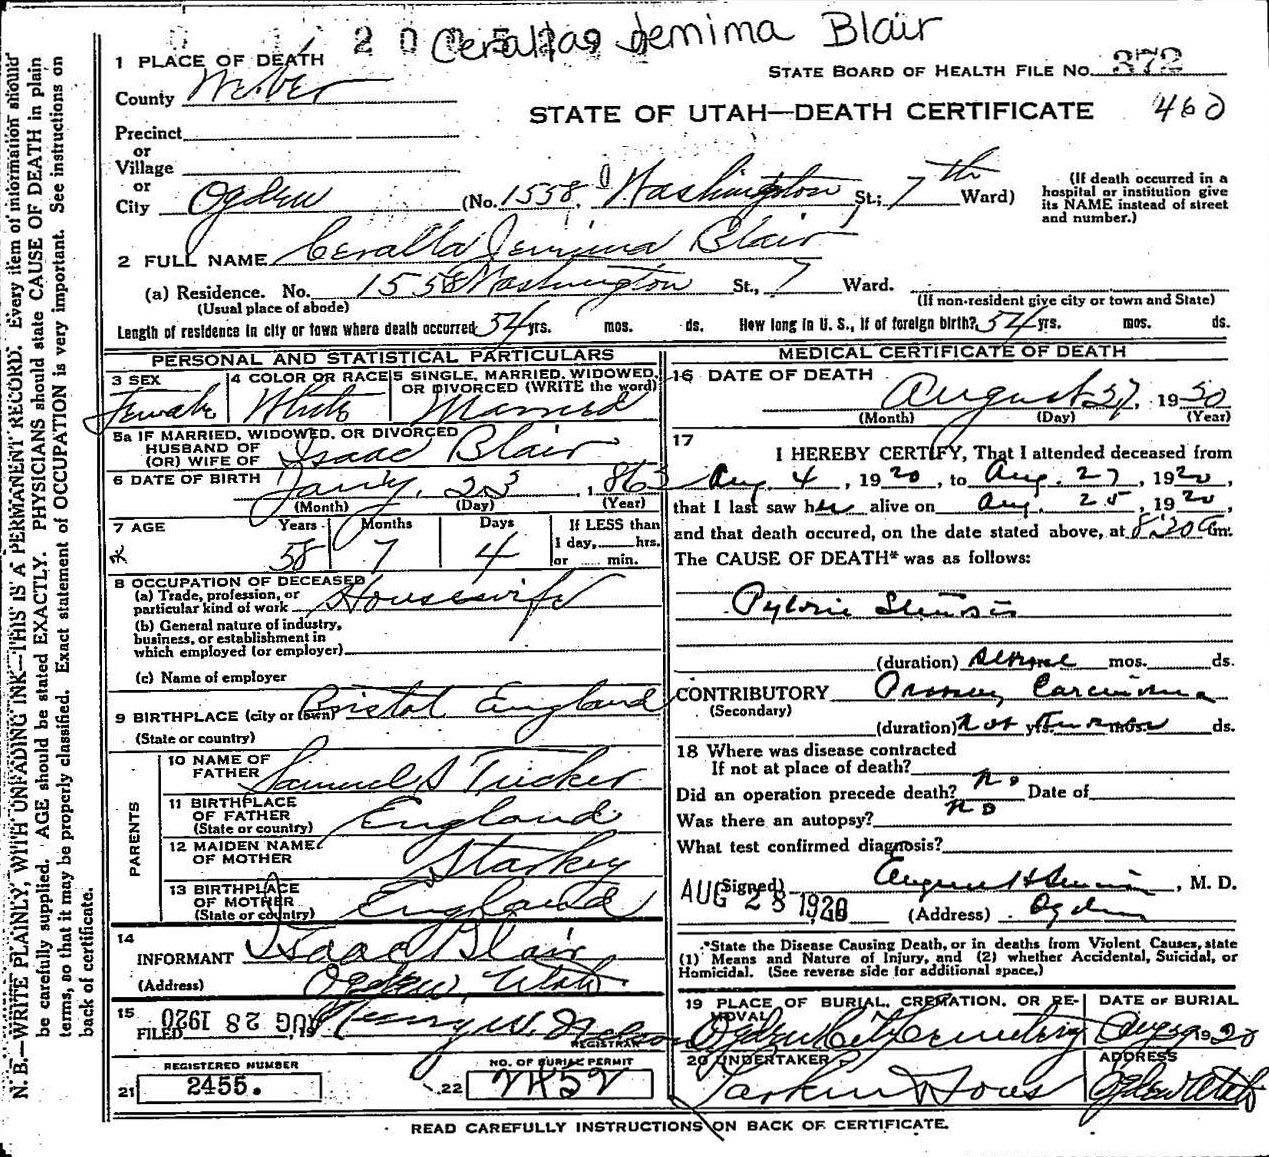 Ceralla Jemima Blair
1 PLACE OF DEATH
STATE BOARD OF HEALTH FILE NO. 372
County Weber
STATE OF UTAH—DEATH CERTIFICATE 460
Precinct
or
Village
or
City Ogden (No. 1558, Washington St.; 7th Ward)
(If death occurred in a
hospital or institution give
its NAME instead of street
and number.)
2 FULL NAME Ceralla Jemima Blair
(a) Residence. No. 1558 Washington St., 7 Ward.
(Usual place of abode)
(If non-resident give city or town and State)
Length of residence in city or town where death occurred 54 yrs. mos. ds. How long in U. S., if of foreign birth? 54 yrs. mos. ds.
PERSONAL AND STATISTICAL PARTICULARS
3 SEX
Female
4 COLOR OR RACE
White
5 SINGLE, MARRIED, WIDOWED,
OR DIVORCED (WRITE the word)
Married
5a IF MARRIED, WIDOWED, OR DIVORCED
HUSBAND OF
(OR) WIFE OF Isaac Blair
6 DATE OF BIRTH Jan'y. 23, 1863
(Month) (Day) (Year)
7 AGE Years Months Days If LESS than
1 day, hrs.
58 7 4 or min.
8 OCCUPATION OF DECEASED
(a) Trade, profession, or
particular kind of work Housewife
(b) General nature of industry,
business, or establishment in
which employed (or employer)
(c) Name of employer
9 BIRTHPLACE (city or town) Bristol England
(State or country)
PARENTS
10 NAME OF
FATHER Samuel S Tucker
11 BIRTHPLACE
OF FATHER England
(State or country)
12 MAIDEN NAME
OF MOTHER Starkey
13 BIRTHPLACE
OF MOTHER England
(State or country)
14
INFORMANT Isaac Blair
(Address) Ogden, Utah
15
FILED AUG 28 1920, 19 Henry W. Nelson
REGISTRAR
REGISTERED NUMBER
21 2455.
NO. OF BURIAL PERMIT
22 2452
MEDICAL CERTIFICATE OF DEATH
16 DATE OF DEATH
August 27, 1920
(Month) (Day) (Year)
17
I HEREBY CERTIFY, That I attended deceased from
Aug. 4, 1920, to Aug. 27, 1920,
that I last saw her alive on Aug. 25, 1920,
and that death occured, on the date stated above, at 8:20 a m.
The CAUSE OF DEATH* was as follows:
Pyloric Stenosis
(duration) Several mos. ds.
CONTRIBUTORY Primary Carcinoma
(Secondary)
(duration) not known yrs. mos. ds.
18 Where was disease contracted
If not at place of death?
Did an operation precede death? no Date of
Was there an autopsy? no
What test confirmed diagnosis?
(Signed) , M. D.
AUG 28 1920 (Address) Ogden
*State the Disease Causing Death, or in deaths from Violent Causes, state
(1) Means and Nature of Injury, and (2) whether Accidental, Suicidal, or
Homicidal. (See reverse side for additional space.)
19 PLACE OF BURIAL, CREMATION, OR RE-
MOVAL
Ogden City Cemetery
DATE OF BURIAL
Aug 29 1920
20 UNDERTAKER
Larkin & Sons
ADDRESS
Ogden Utah
READ CAREFULLY INSTRUCTIONS ON BACK OF CERTIFICATE.
N. B.—WRITE PLAINLY, WITH UNFADING INK—THIS IS A PERMANENT RECORD. Every item of information should
be carefully supplied. AGE should be stated EXACTLY. PHYSICIANS should state CAUSE OF DEATH in plain
terms, so that it may be properly classified. Exact statement of OCCUPATION is very important. See instructions on
back of certificate.